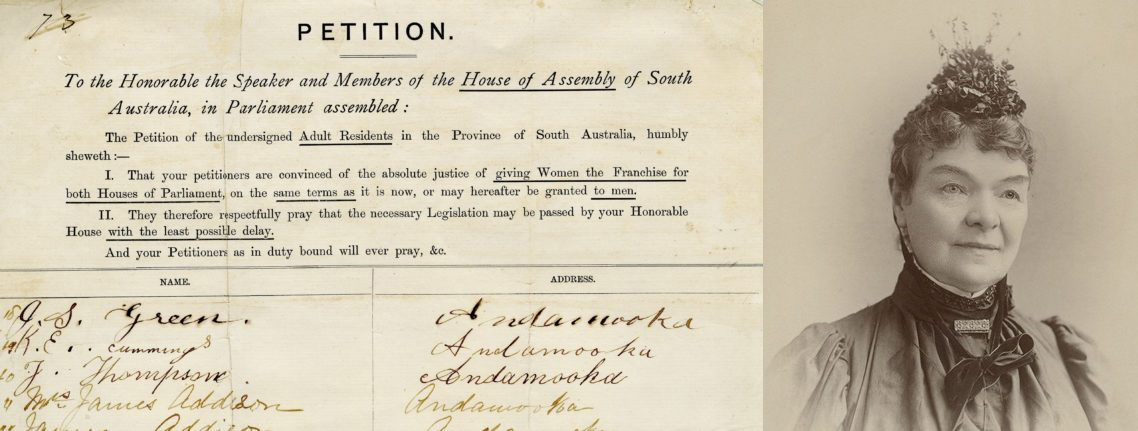 73
PETITION.
To the Honorable the Speaker and Members of the House of Assembly of South
Australia, in Parliament assembled :
The Petition of the undersigned Adult Residents in the Province of South Australia, humbly
sheweth :—
I. That your petitioners are convinced of the absolute justice of giving Women the Franchise for
both Houses of Parliament, on the same terms as it is now, or may hereafter be granted to men.
II. They therefore respectfully pray that the necessary Legislation may be passed by your Honorable
House with the least possible delay.
And your Petitioners as in duty bound will ever pray, &c.
NAME. ADDRESS.
G. S. Green. Andamooka
K. E. . cummings Andamooka
J. Thompson. Andamooka
" Mrs James Addison Andamooka
James Addison